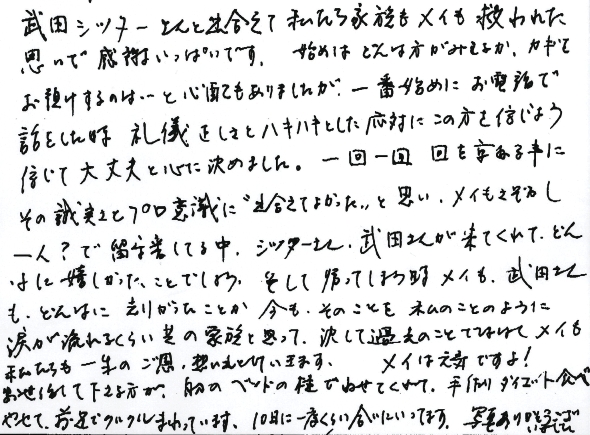 武田シッターさんと出会えて 私たち家族も メイも 救われた
思いで 感謝いっぱいです。 始めは どんな方がみえるか、カギを
お預けするのは…と心配もありましたが、一番始めに お電話で
話をした時 礼儀正しさとハキハキとした応対に この方を信じよう
信じて大丈夫と心に決めました。 一回一回 回を重ねる事に
その誠実さとプロ意識に "出会えてよかった"と思い、メイもさぞかし
一人?で留守番してる中、シッターさん、武田さんが来てくれて、どん
なに嬉しかったことでしょう。 そして帰ってしまう時 メイも、武田さん
も、どんなに 辛かったことか 今も、そのことを 私のことのように
涙が流れるくらい 昔の家族と思って、決して過去のことではなく メイも
私たちも 一生のご恩、想い 王ます。 メイは元気ですよ!
お世話して下さる方が、 のベッドの様で わせてくれて、手作りダイエット食べ
やせて、前足でクルクルまわっています。 10日に一度くらい会いにいってます。 写真ありがとうござ
いました